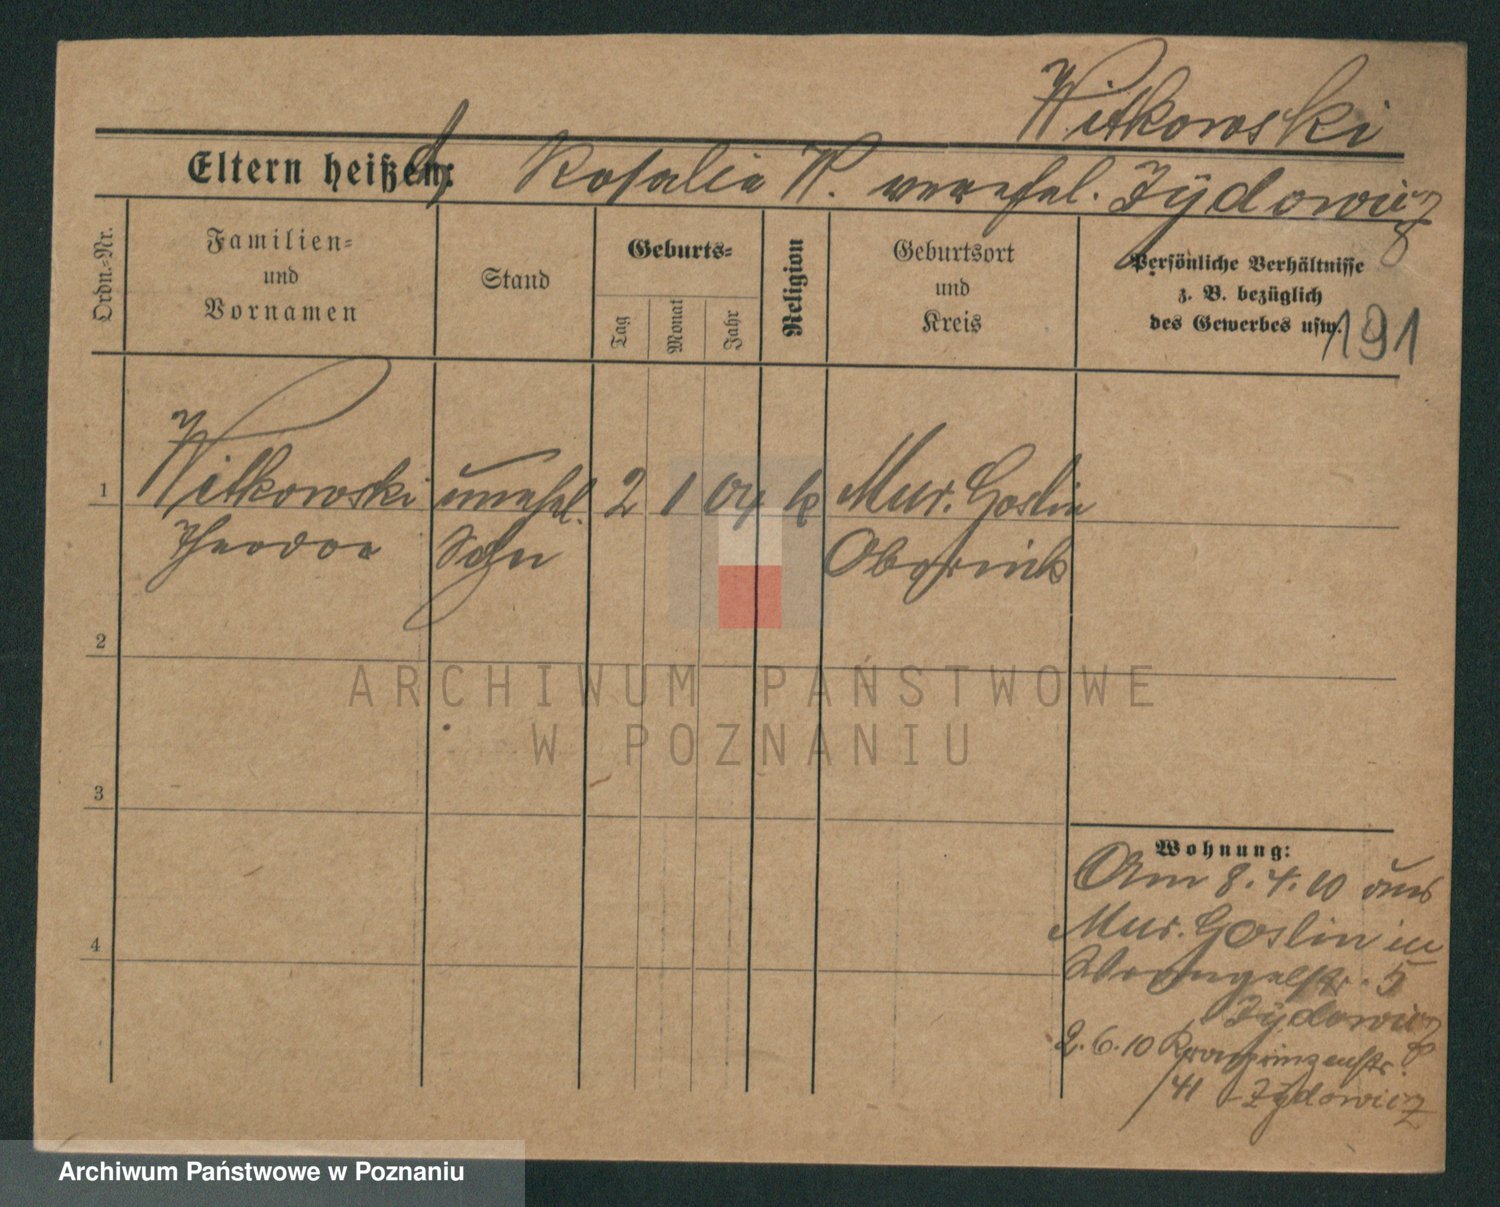 Witkowski
Eltern heißen: Rosalia W. verehel. Zydowicz
Ordn.-Nr.
Familien-
und
Vornamen
Stand
Geburts-
Tag
Monat
Jahr
Religion
Geburtsort
und
Kreis
Persönliche Verhältnisse
z. B. bezüglich
des Gewerbes usw.
191
1 Witkowski unehel. 2 1 04 k Mur. Goslin
Theodor Sohn Obornik
2
3
4
Wohnung:
Am 8.4.10 aus
Mur. Goslin in
Wrangelstr. 5
Zydowicz
2.6.10 Kronprinzenstr.
/41 Zydowicz
ARCHIWUM PAŃSTWOWE
W POZNANIU
Archiwum Państwowe w Poznaniu